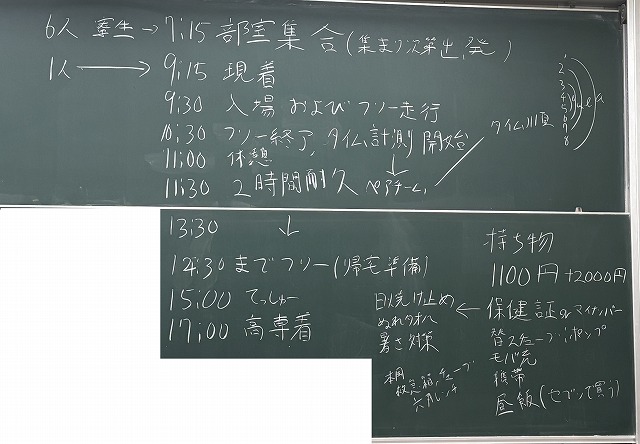 6人 寮生→7:15 部室集合(集まり次第出発)
1人→9:15 現着
9:30 入場 およびフリー走行
10:30 フリー終了、タイム計測 開始
11:00 休憩
11:30 2時間耐久 ペアチーム
タイム順
1
2
3
4
5
6
7
8
13:30 ↓
14:30 までフリー(帰宅準備)
15:00 てっしゅー
17:00 高専着
持ち物
1100円+2000円
保健証orマイナンバー
替えチューブ、ポンプ
モバ充
携帯
昼飯(セブンで買う)
← 日焼け止め
ぬれタオル
暑さ対策
救急箱、チューブ
六角レンチ